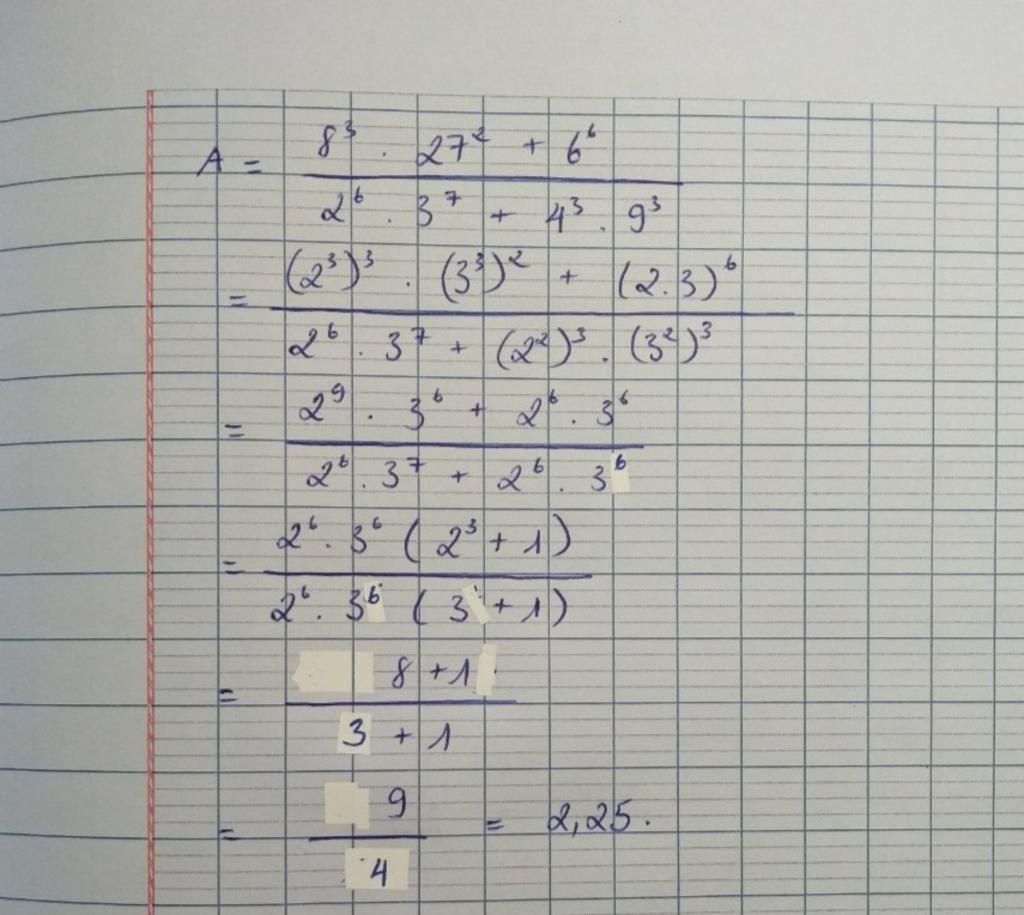 A = (8³ . 27² + 6⁶) / (2⁶ . 3⁷ + 4³ . 9³)
= ((2³)³ . (3³)² + (2.3)⁶) / (2⁶ . 3⁷ + (2²)³ . (3²)³)
= (2⁹ . 3⁶ + 2⁶ . 3⁶) / (2⁶ . 3⁷ + 2⁶ . 3⁶)
= (2⁶ . 3⁶ (2³ + 1)) / (2⁶ . 3⁶ (3 + 1))
= (8 + 1) / (3 + 1)
= 9 / 4 = 2,25.